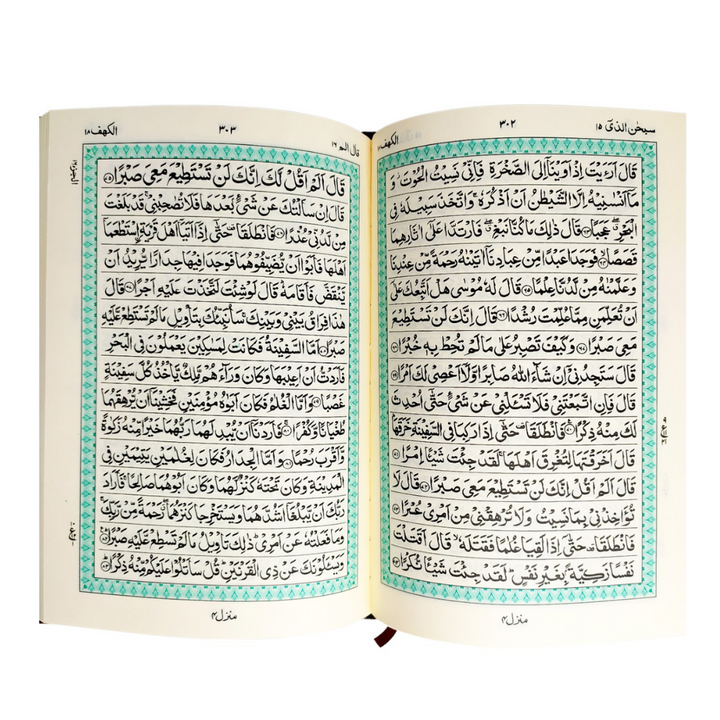 سبحٰن الذیٓ ١٥
٣٠٢
الکهف ١٨
قَالَ اَرَءَيْتَ اِذْ اَوَيْنَاۤ اِلَى الصَّخْرَةِ فَاِنِّىْ نَسِيْتُ الْحُوْتَ ؗ وَ
مَاۤ اَنْسٰىنِيْهُ اِلَّا الشَّيْطٰنُ اَنْ اَذْكُرَهٗ ۚ وَاتَّخَذَ سَبِيْلَهٗ فِى
الْبَحْرِ ۖ عَجَبًا ﴿٦٣﴾ قَالَ ذٰلِكَ مَا كُنَّا نَبْغِ ۖ فَارْتَدَّا عَلٰٓى اٰثَارِهِمَا
قَصَصًا ﴿٦٤﴾ فَوَجَدَا عَبْدًا مِّنْ عِبَادِنَاۤ اٰتَيْنٰهُ رَحْمَةً مِّنْ عِنْدِنَا
وَعَلَّمْنٰهُ مِنْ لَّدُنَّا عِلْمًا ﴿٦٥﴾ قَالَ لَهٗ مُوْسٰى هَلْ اَتَّبِعُكَ عَلٰٓى
اَنْ تُعَلِّمَنِ مِمَّا عُلِّمْتَ رُشْدًا ﴿٦٦﴾ قَالَ اِنَّكَ لَنْ تَسْتَطِيْعَ
مَعِىَ صَبْرًا ﴿٦٧﴾ وَكَيْفَ تَصْبِرُ عَلٰى مَا لَمْ تُحِطْ بِهٖ خُبْرًا ﴿٦٨﴾
قَالَ سَتَجِدُنِىْۤ اِنْ شَآءَ اللّٰهُ صَابِرًا وَّلَاۤ اَعْصِىْ لَكَ اَمْرًا ﴿٦٩﴾
قَالَ فَاِنِ اتَّبَعْتَنِىْ فَلَا تَسْئَلْنِىْ عَنْ شَىْءٍ حَتّٰٓى اُحْدِثَ
لَكَ مِنْهُ ذِكْرًا ﴿٧٠﴾ فَانْطَلَقَا ۥ حَتّٰٓى اِذَا رَكِبَا فِى السَّفِيْنَةِ خَرَقَهَا ؕ
قَالَ اَخَرَقْتَهَا لِتُغْرِقَ اَهْلَهَا ۚ لَقَدْ جِئْتَ شَيْئًا اِمْرًا ﴿٧١﴾
قَالَ اَلَمْ اَقُلْ اِنَّكَ لَنْ تَسْتَطِيْعَ مَعِىَ صَبْرًا ﴿٧٢﴾ قَالَ لَا
تُؤَاخِذْنِىْ بِمَا نَسِيْتُ وَلَا تُرْهِقْنِىْ مِنْ اَمْرِىْ عُسْرًا ﴿٧٣﴾
فَانْطَلَقَا ۥ حَتّٰٓى اِذَا لَقِيَا غُلٰمًا فَقَتَلَهٗ ۙ قَالَ اَقَتَلْتَ
نَفْسًا زَكِيَّةًۢ بِغَيْرِ نَفْسٍ ؕ لَقَدْ جِئْتَ شَيْئًا نُّكْرًا ﴿٧٤﴾
منزل ٤
قال الم ١٦
٣٠٣
الکهف ١٨
قَالَ اَلَمْ اَقُلْ لَّكَ اِنَّكَ لَنْ تَسْتَطِيْعَ مَعِىَ صَبْرًا ﴿٧٥﴾
قَالَ اِنْ سَاَلْتُكَ عَنْ شَىْءٍۢ بَعْدَهَا فَلَا تُصٰحِبْنِىْ ۚ قَدْ بَلَغْتَ
مِنْ لَّدُنِّىْ عُذْرًا ﴿٧٦﴾ فَانْطَلَقَا ۥ حَتّٰٓى اِذَاۤ اَتَيَاۤ اَهْلَ قَرْيَةِ ۨ اسْتَطْعَمَاۤ
اَهْلَهَا فَاَبَوْا اَنْ يُّضَيِّفُوْهُمَا فَوَجَدَا فِيْهَا جِدَارًا يُّرِيْدُ اَنْ
يَّنْقَضَّ فَاَقَامَهٗ ؕ قَالَ لَوْ شِئْتَ لَتَّخَذْتَ عَلَيْهِ اَجْرًا ﴿٧٧﴾ قَالَ
هٰذَا فِرَاقُ بَيْنِىْ وَبَيْنِكَ ۚ سَاُنَبِّئُكَ بِتَاْوِيْلِ مَا لَمْ تَسْتَطِعْ عَّلَيْهِ
صَبْرًا ﴿٧٨﴾ اَمَّا السَّفِيْنَةُ فَكَانَتْ لِمَسٰكِيْنَ يَعْمَلُوْنَ فِى الْبَحْرِ
فَاَرَدْتُّ اَنْ اَعِيْبَهَا وَكَانَ وَرَآءَهُمْ مَّلِكٌ يَّاْخُذُ كُلَّ سَفِيْنَةٍ
غَصْبًا ﴿٧٩﴾ وَاَمَّا الْغُلٰمُ فَكَانَ اَبَوٰهُ مُؤْمِنَيْنِ فَخَشِيْنَاۤ اَنْ يُّرْهِقَهُمَا
طُغْيَانًا وَّكُفْرًا ﴿٨٠﴾ فَاَرَدْنَاۤ اَنْ يُّبْدِلَهُمَا رَبُّهُمَا خَيْرًا مِّنْهُ زَكٰوةً
وَّاَقْرَبَ رُحْمًا ﴿٨١﴾ وَاَمَّا الْجِدَارُ فَكَانَ لِغُلٰمَيْنِ يَتِيْمَيْنِ فِى
الْمَدِيْنَةِ وَكَانَ تَحْتَهٗ كَنْزٌ لَّهُمَا وَكَانَ اَبُوْهُمَا صَالِحًا ۚ فَاَرَادَ
رَبُّكَ اَنْ يَّبْلُغَاۤ اَشُدَّهُمَا وَيَسْتَخْرِجَا كَنْزَهُمَا ۖ رَحْمَةً مِّنْ رَّبِّكَ ۚ
وَمَا فَعَلْتُهٗ عَنْ اَمْرِىْ ؕ ذٰلِكَ تَاْوِيْلُ مَا لَمْ تَسْطِعْ عَّلَيْهِ صَبْرًا ﴿٨٢﴾
وَيَسْئَلُوْنَكَ عَنْ ذِى الْقَرْنَيْنِ ؕ قُلْ سَاَتْلُوْا عَلَيْكُمْ مِّنْهُ ذِكْرًا ﴿٨٣﴾
منزل ٤